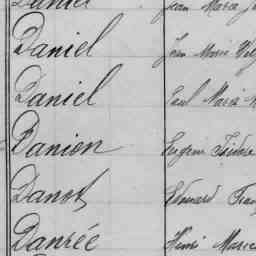 Daniel Jean Marie
Daniel Jean Marie
Daniel Paul Marie
Danion Eugène Isidore
Danot Edouard
Danrée Henri Marie